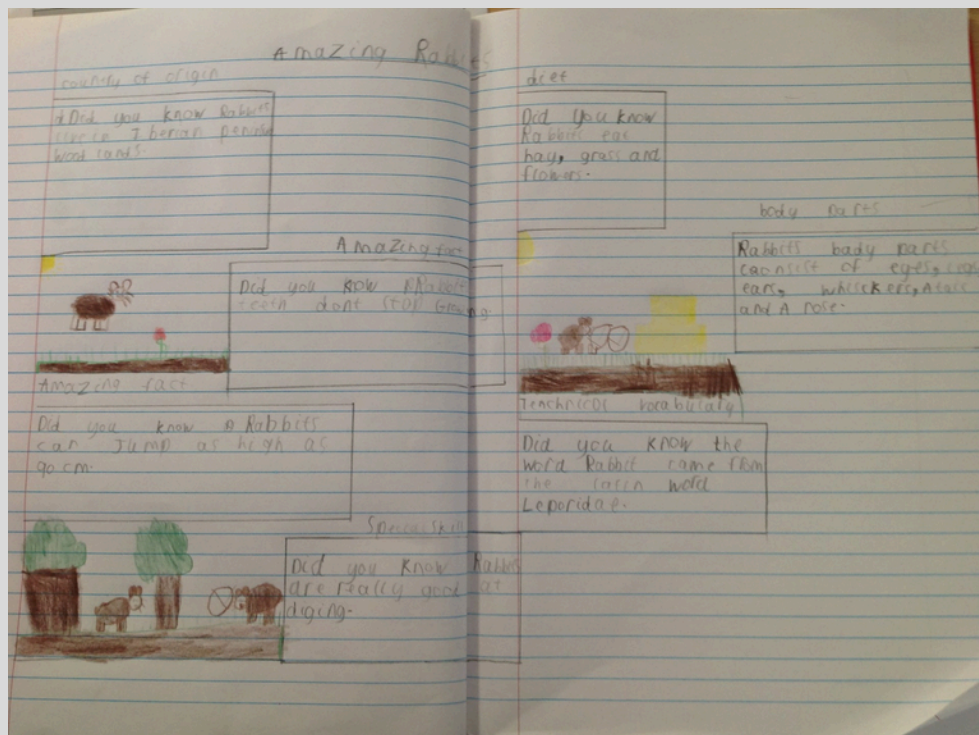 Amazing Rabbits
country of origin
Did you know Rabbits
live in Iberian
wood lands.
Amazing fact
Did you know Rabbit
teeth dont STOP Growing.
Amazing fact
Did you know A Rabbits
can Jump as high as
90 cm.
Special skill
Did you know Rabbits
are really good at
diging.
diet
Did you know
Rabbits eat
hay, grass and
flowers.
body parts
Rabbits body parts
consist of eyes, legs
ears, whisckers, A tail
and A nose.
vocabulary
Did you know the
word Rabbit came from
the latin word
Leporidae.